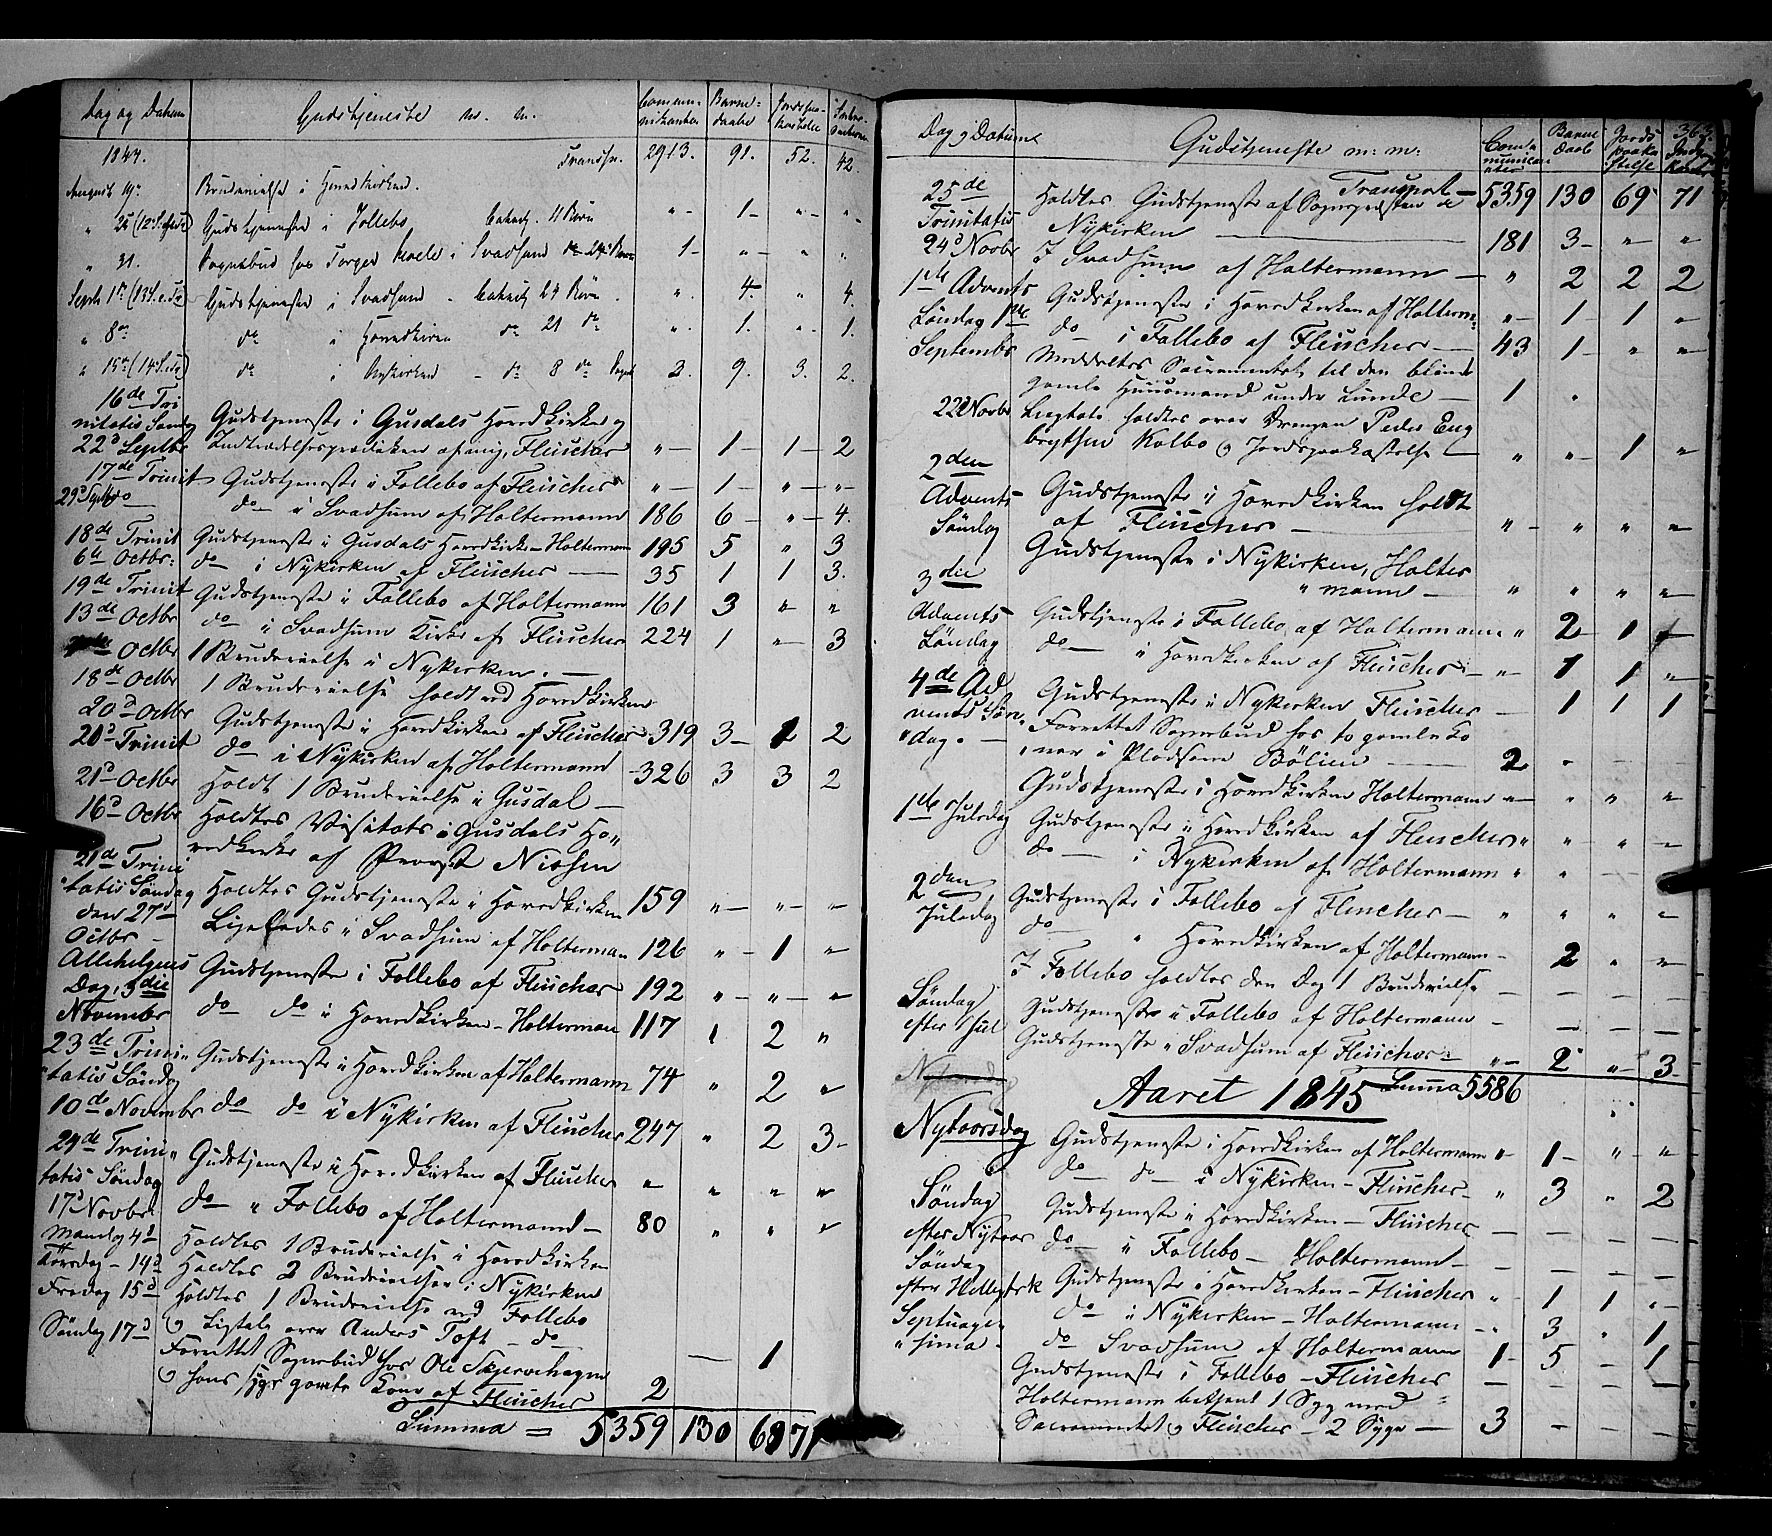 Dag og Datum Gudstjeneste m. m. Commu- Barne- Jordspaa-
nikanter daabe kastelse
1844. Transp. 2913. 91. 52. 42.
August 19. Brudevielse i Hovedkirken.
" 25 (12 S. e. Tr.) Gudstjeneste i Follebo Catech. 11 Børn "- 1- "- "-
" 31. Sognebud hos Torger i Svadsum 1- "- "- "
Septb 1ste (13 S. e. Tr.) Gudstjeneste i Svadsum - Catech. 24 Børn. ". 4. ". 4.
" 8de do i Hovedkirken do 21 do ". 1. ". 1.
" 15de (14 S. e. Tr.) do i Nykirken - do 8 do 2. 9. 3. 2.
16de Tri
nitatis Søndag Gudstjeneste i Gusdals Hovedkirke og
22d Septbr Indtrædelsesprædiken af mig, Fleischer "- 1- 1- 2
17de Trinit Gudstjeneste i Follebo af Fleischer "- 1- "- "-
29d Septbr do i Svadsum af Holtermann 186 6- "- 4.
18de Trinit Gudstjeneste i Gusdals Hovedkirke - Holtermann 195 5 " 3
6te Octbr: do i Nykirken af Fleischer 35 1 1 3.
19de Trinit Gudstjeneste i Follebo af Holtermann 161 3 " "
13de Octbr do i Svadsum Kirke af Fleischer 224 1 "- 3
Octbr 1 Brudevielse i Nykirken. -
18de Octbr 1 Brudevielse holdt ved Hovedkirken
20d Octbr
20d Trinit Gudstjeneste i Hovedkirken af Fleischer 319 3- 2
do i Nykirken af Holtermann 326 3 3 2
21d Octbr Holdt 1 Brudevielse i Gusdal -
16d Octbr Holdtes Visitats i Gusdals Ho"
vedkirke af Provst Nissen
21de Trini
"tatis Søndag Holdtes Gudstjeneste i Hovedkirken 159 "- "- "-
den 27d
Octbr - Ligeledes i Svadsum af Holterman 126 "- 1 "
Allehelgens Gudstjeneste i Follebo af Fleischer 192 "- "- "
Dag, 3die
Novembr do do i Hovedkirken - Holterman 117 1 2 "
23de Trini"
"tatis Søndag Gudstjeneste i Hovedkirken af Holtermann 74 " 2 "
10de Novembr do do i Nykirken af Fleischer 247 " 2 3-
24de Trini"
tatis Søndag Gudstjeneste i Hovedkirken af Fleischer " " " "
17d Novbr do " Follebo af Holtermann - 80 " " "
Mandag 4d Holdtes 1 Brudevielse i Hovedkirken
Torsdag - 14d Holdtes 2 Brudevielser i Nykirken
Fredag 15d Holdtes 1 Brudevielse ved Follebo
Søndag 17d og Ligtale over Anders Toft - do - 1
Forrettet Sognebud hos Ole Skjervehagen
og hans syge gamle Kone af Fleischer 2
Summa = 5359 130 69 71
363.
Dag og Datum Gudstjeneste m: m: Com"municanter Barne daab Jords paakastelse
Transport - 5359 130 69 71
25de Trinitatis Holdtes Gudstjeneste af Sognepræsten
24d Novbr Nykirken 181 3- "- "
I Svadsum af Holtermann - " 2 2 2
1ste Advents Gudstjeneste i Hovedkirken af Holterm: "- 1- 1- "
Søndag 1ste do i Follebo af Fleischer - 43 1- " "-
Septembr Meddeltes Sacramentet til den blinde
gamle Huusmand under Lunde - 1 "
22d Novbr Ligtale holdtes over Drengen Peder Eng
brethsen Kolbo og Jordspaakastelse " "- 1 "
2den
Advents Gudstjeneste i Hovedkirken holdt
Søndag af Fleischer - "- " " "-
3die Gudstjeneste i Nykirken, Holter
"mann - " " " "-
Advents Gudstjeneste i Follebo af Holtermann " 2- 1-
Søndag do - i Hovedkirken af Fleischer - "- 1 1 "-
4de Ad
vents Søn Gudstjeneste i Nykirken Fleischer - 1 1 1
"dag. - Forrettet Sognebud hos to gamle Ko
"ner i Pladsene Bølien 2
Gudstjeneste i Hovedkirken Holtermann "- " " "
1ste Juledag Gudstjeneste i Hovedkirken af Fleischer " "- " "-
do - i Nykirken af Holtermann " "
2den Juledag Gudstjeneste i Follebo af Fleischer - " " " "-
do " Hovedkirken af Holtermann - 2 " "-
I Follebo holdtes den Dag 1 Brudevielse
Søndag Gudstjeneste i Follebo af Holtermann -
efter Jul Gudstjeneste " Svadsum af Fleischer - "- 2 "- 3
Summa 5586
Aaret 1845
Nytaarsdag Gudstjeneste i Hovedkirken af Holtermann "- 1- " "
do do i Nykirken - Fleischer - " 3 " 2
Søndag Gudstjeneste i Hovedkirken - Fleischer
efter Nytaar do " Follebo - Holtermann -
Søndag
efter Hellig3rk Gudstjeneste i Hovedkirken - Fleischer " 1 1 "-
Septuage do i Nykirken - Holtermann - " 3 " 1
"sima. do Svadsum af Holtermann 1- 5 - 1
Gudstjeneste i Follebo - Fleischer
Holtermann betjent 1 Syg med
Sacramentet og Fleischer - 2 Syge - 3 - - -